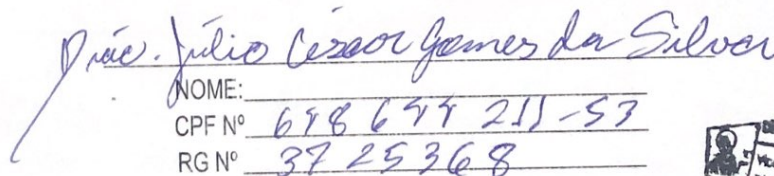 Diác. Júlio César Gomes da Silva
NOME:
CPF Nº 698 644 211-53
RG Nº 3725368